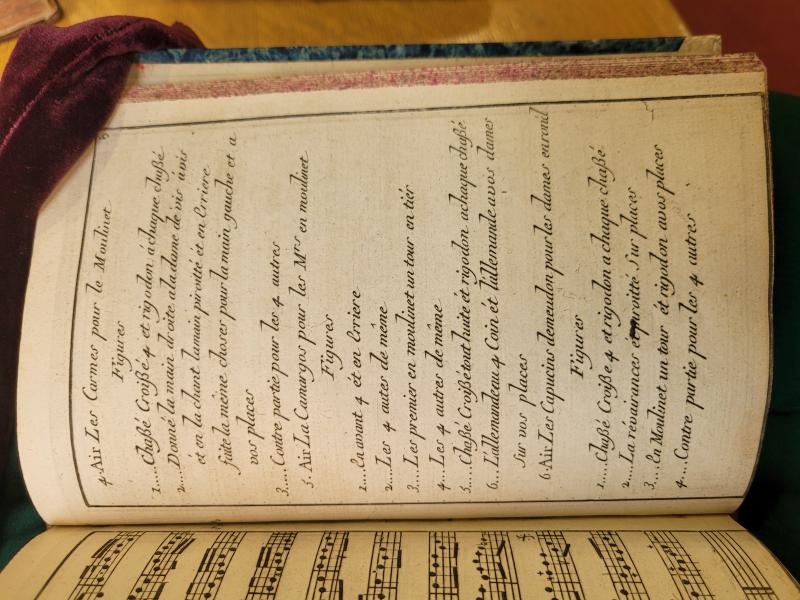 4. Air Les Carmes pour le Moulinet
Figures
1.... Chaßé Croißé 4 et rigodon a chaque chaßé
2.... Donné la main droite a la dame de vis avis
et en la chant la main piroitté et en Erriere
faite la même choses pour la main gauche et a
vos places
3.... Contre partie pour les 4 autres
5. Air La Camargos pour les Mrs en moulinet
Figures
1.... En avant 4 ét en Erriere
2.... Les 4 autes de même
3.... Les premier en moulinet un tour en tiér
4.... Les 4 autres de même
5.... Chaßé Croißé tout huite ét rigodon achaque chaßé
6.... L'allemandeau 4 Coin et l'allemande a vos dames
sur vos places
6. Air Les Capucins demeudon pour les dames enrond
Figures
1.... Chaßé Croißé 4 et rigodon a chaque chaßé
2.... La révairances et piroitté Sur places
3.... En Moulinet un tour ét rigodon avos places
4.... Contre partie pour les 4 autres